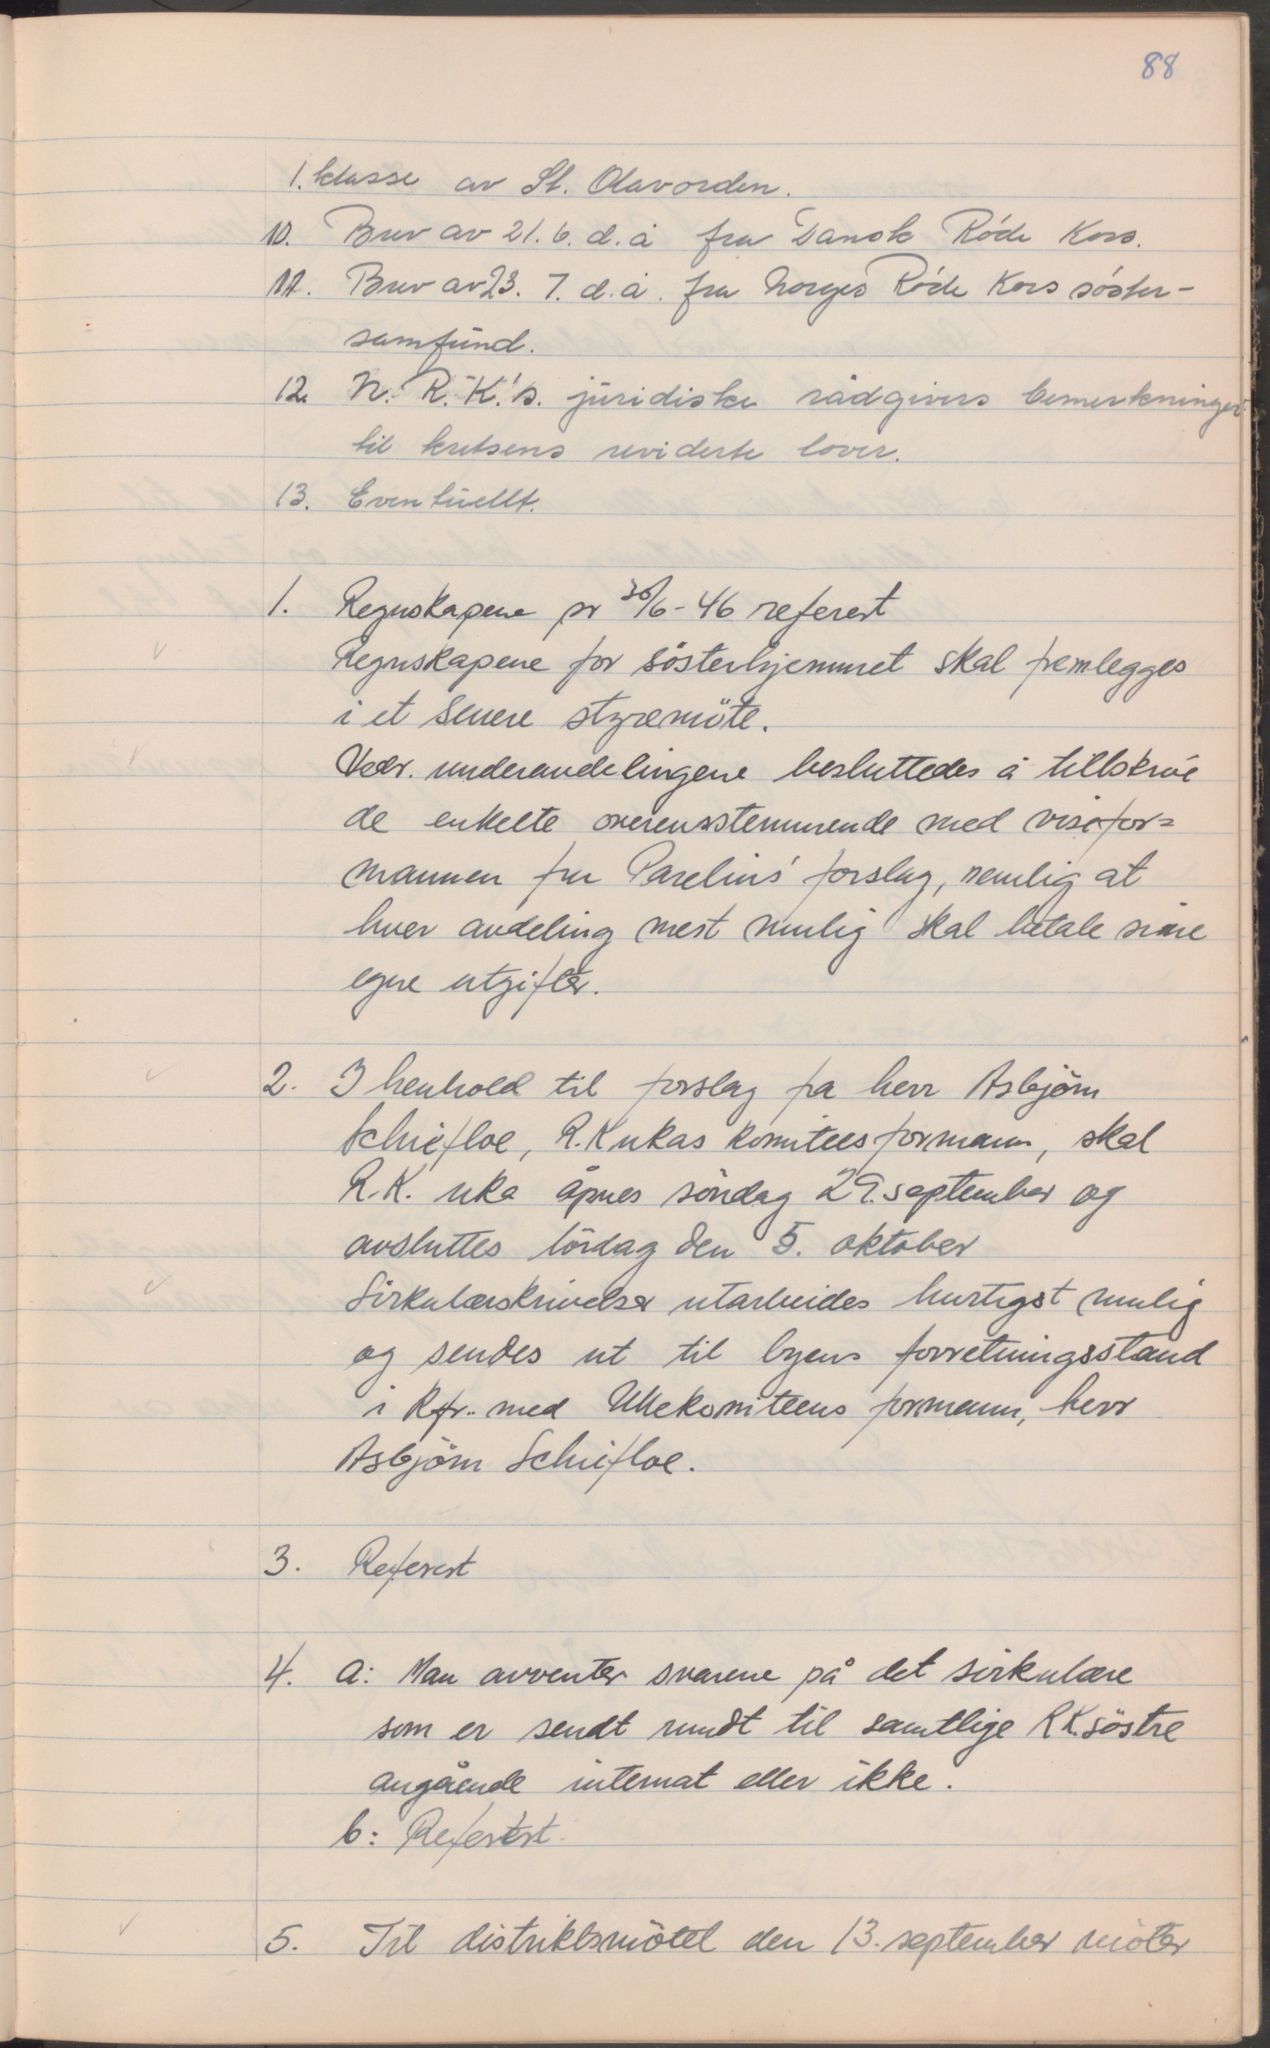 88
1. klasse av St. Olavorden.
10. Brev av 21.6. d.å fra Dansk Røde Kors.
11. Brev av 23. 7. d.å. fra Norges Røde Kors søster-
samfund.
12. N. R. K.'s. juridiske rådgivers bemerkninger
til kretsens reviderte lover.
13. Eventuellt.
1. Regnskapene pr 30/6-46 referert
Regnskapene for søsterhjemmet skal fremlegges
i et senere styremöte.
Vedr. underavdelingene besluttedes å tillskrive
de enkelte overensstemmende med visefor=
mannen fru Parelius' forslag, nemlig at
hver avdeling mest mulig skal betale sine
egne utgifter.
2. I henhold til forslag fra herr Asbjörn
Schiefloe, R.Kukas komiteesformann, skal
R.K. uka åpnes söndag 29. september og
avsluttes lördag den 5. oktober
Sirkulærskrivelse utarbeides hurtigst mulig
og sendes ut til byens forretningsstand
i kfr. med Ukekomiteens formann, herr
Asbjörn Schiefloe.
3. Referert
4. a: Man avventer svarene på det sirkulære
som er sendt rundt til samtlige RKsöstre
angående internat eller ikke.
b: Referert.
5. Til distriktsmötet den 13. september möter